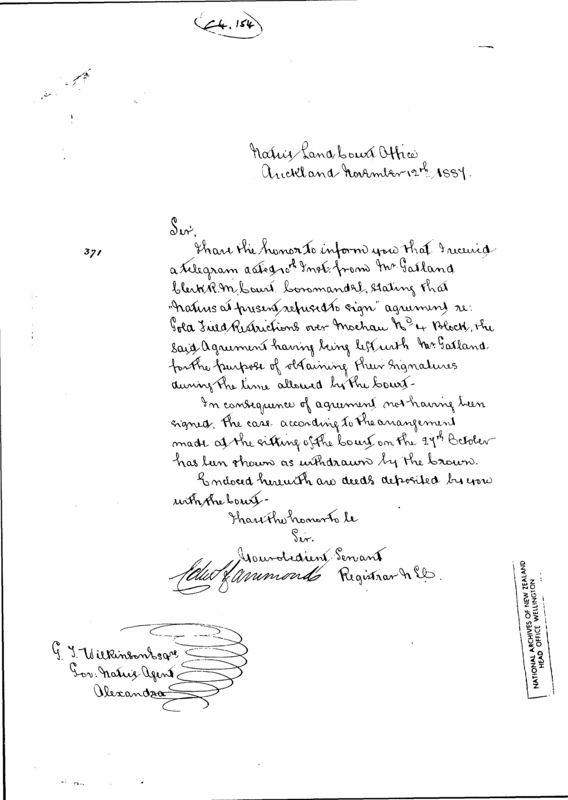 C4. 154
Native Land Court Office
Auckland November 12th, 1887.
371
Sir,
I have the honor to inform you that I received
a telegram dated 10th Inst: from Mr Gatland
Clerk R.M. Court, Coromandel, stating that
"Natives at present refused to sign" agreement re:
Gold Field Restrictions over Moehau No 4 Block, the
said Agreement having being left with Mr Gatland
for the purpose of obtaining their signatures
during the time allowed by the Court-
In consequence of agreement not having been
signed, the case according to the arrangement
made at the sitting of the Court on the 27th October
has been shown as withdrawn by the Crown.
Enclosed herewith are deeds deposited by you
with the Court-
I have the honor to be
Sir,
Your obedient Servant
Edw Hammond Registrar N L C.
G. T. Wilkinson Esqre
Gov: Native Agent
Alexandra
NATIONAL ARCHIVES OF NEW ZEALAND
HEAD OFFICE WELLINGTON